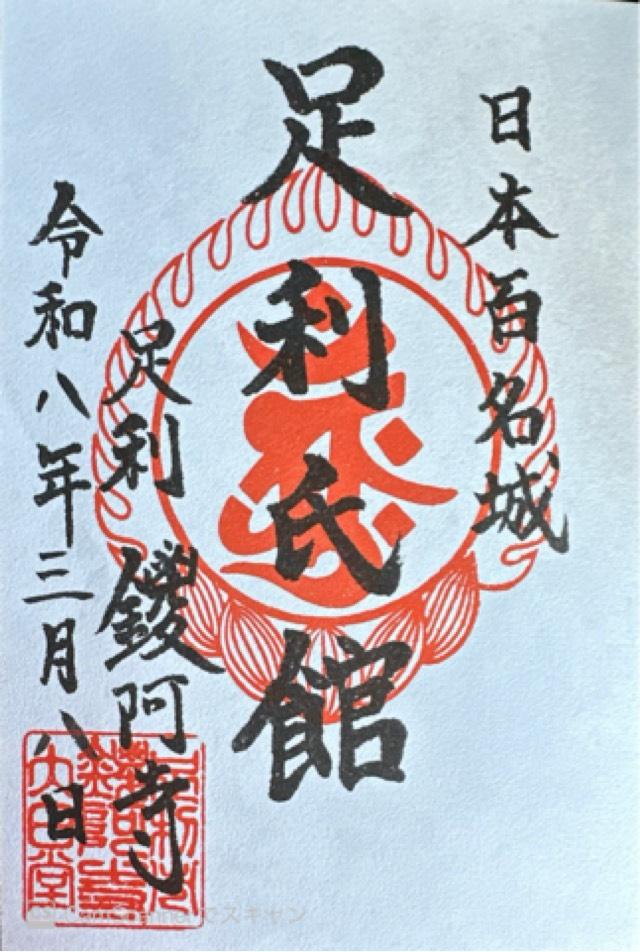 日本百名城
足利氏館
足利 鑁阿寺
令和八年三月八日
大日堂
CamScanner でスキャン